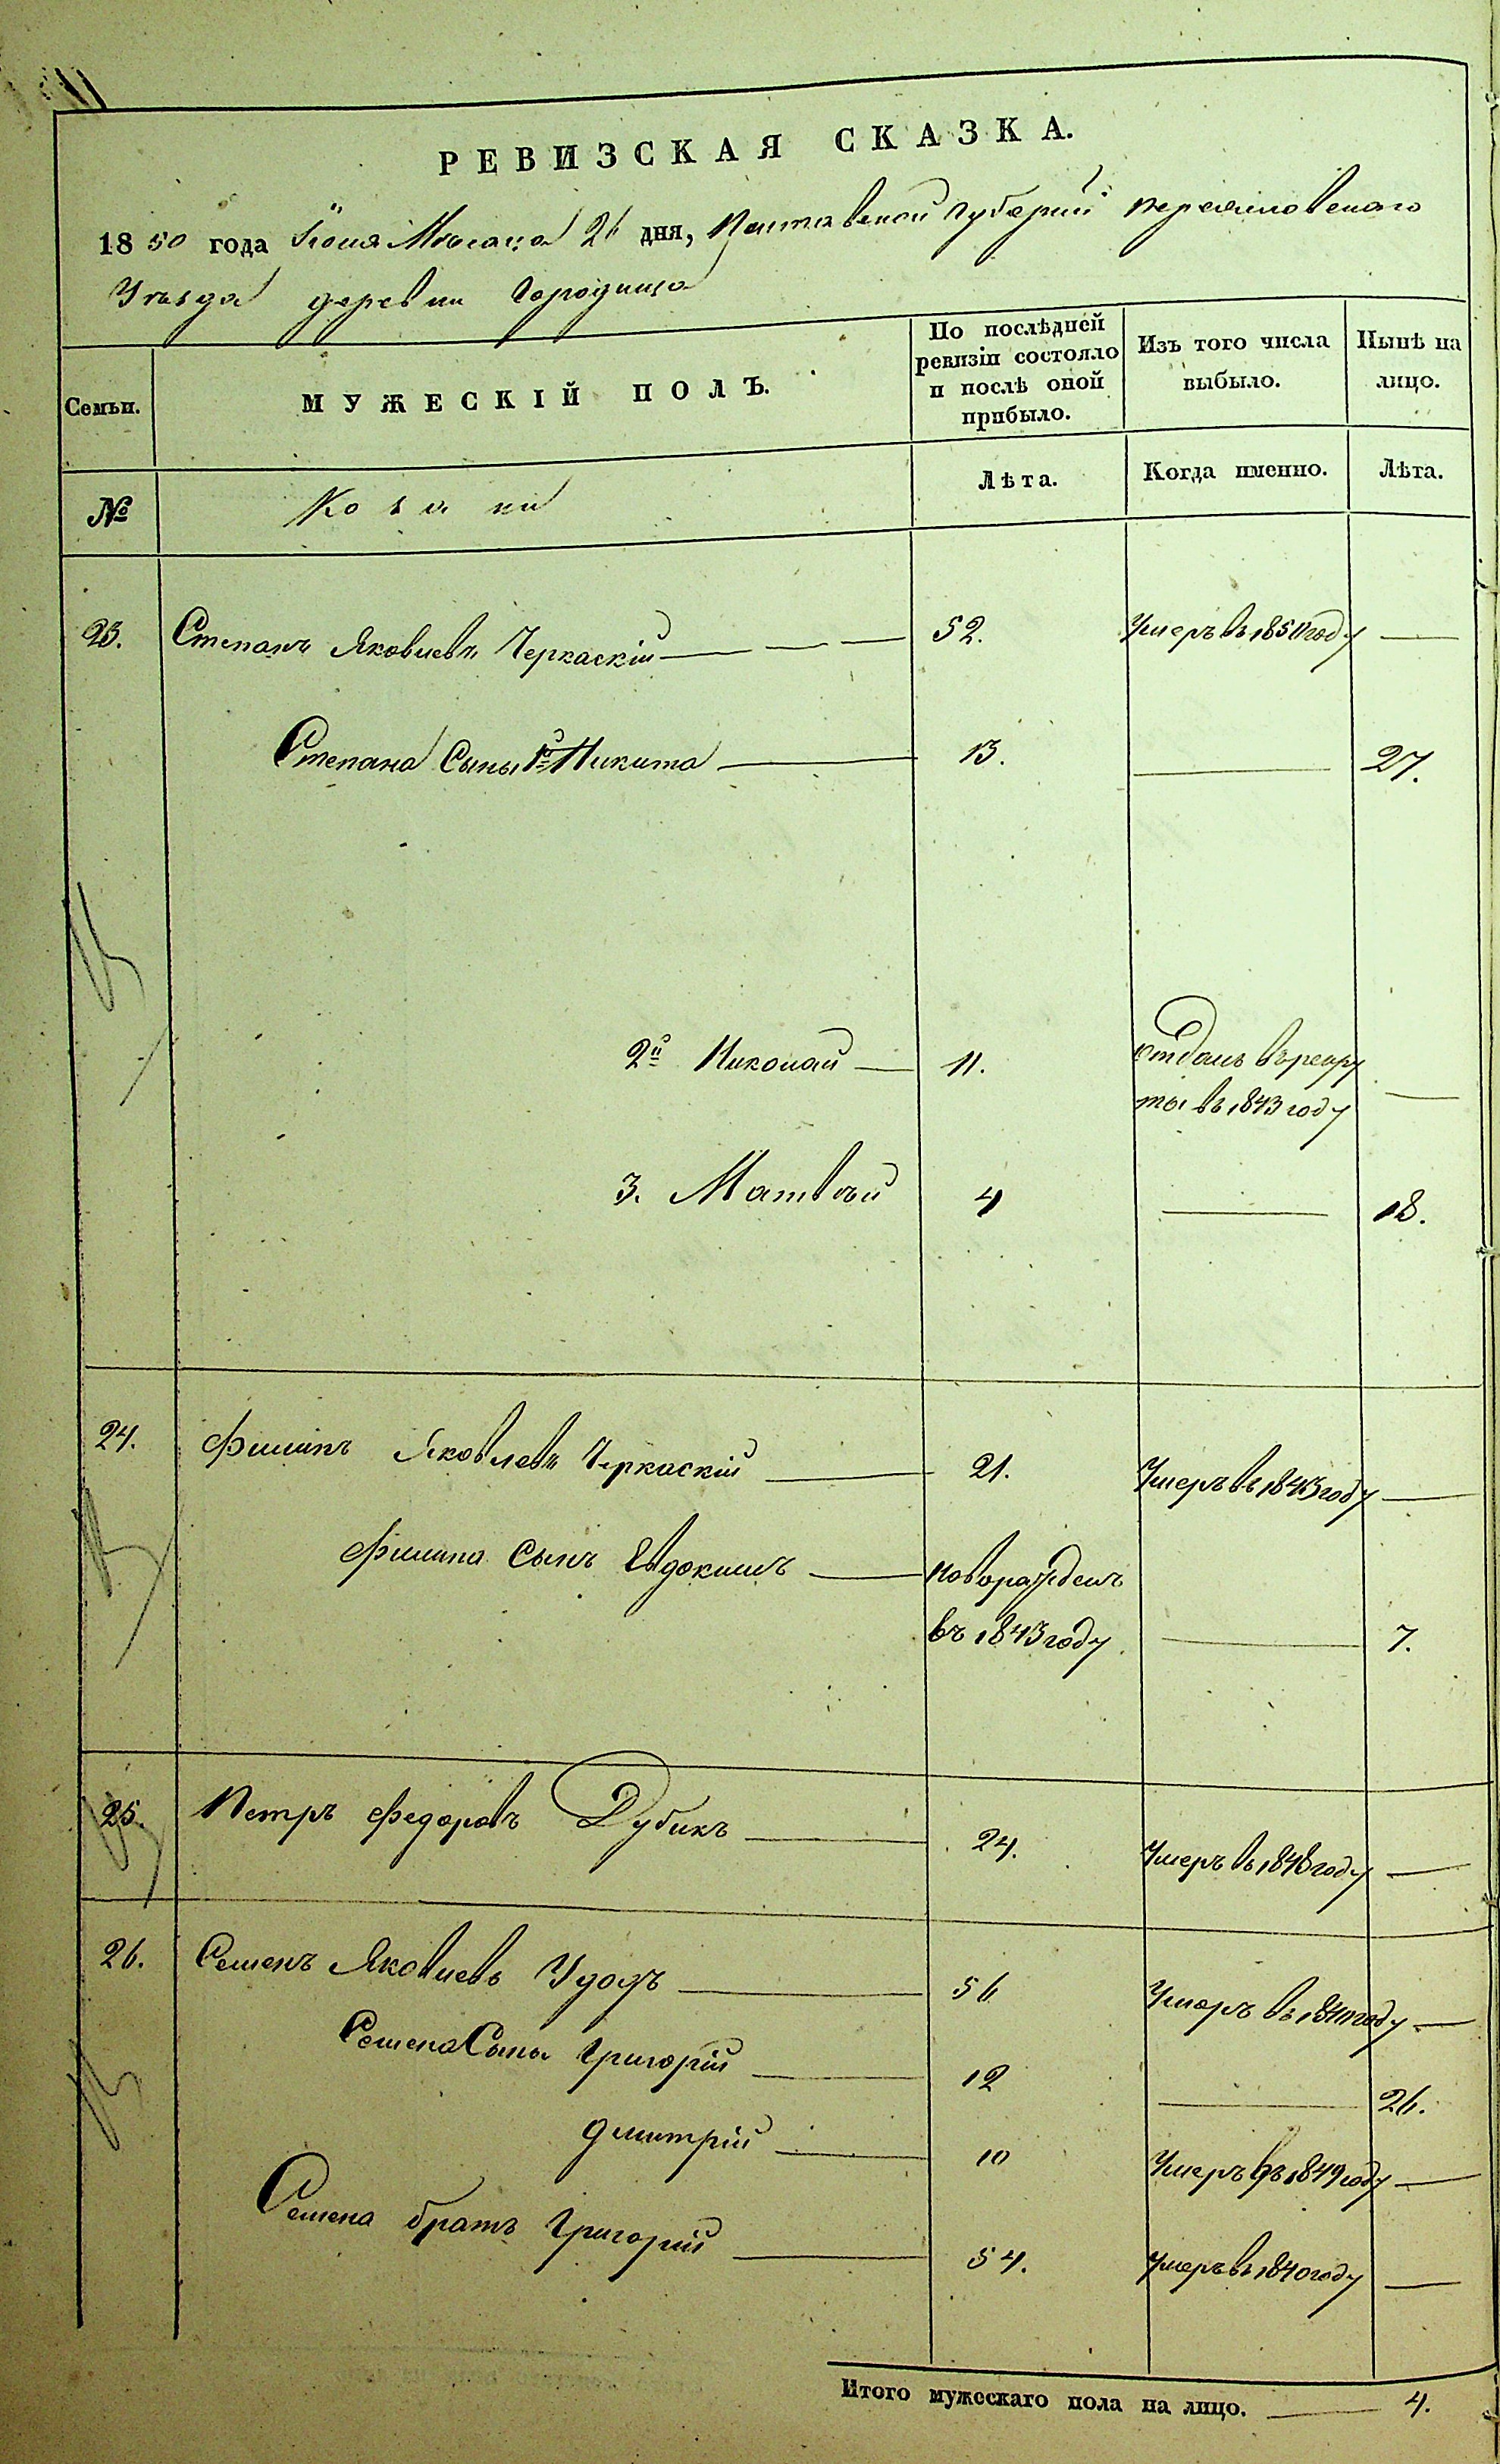 РЕВИЗСКАЯ СКАЗКА.
1850 года Іюня Мѣсяца 26 дня, Полтавской Губерніи Переяславскаго
Уѣзда деревни Городища
Семьи. МУЖЕСКІЙ ПОЛЪ. По послѣдней ревизіи состояло и послѣ оной прибыло. Изъ того числа выбыло. Нынѣ на лицо.
№ Козаки Лѣта. Когда именно. Лѣта.
23. Степанъ Яковлевъ Черкаскій 52. Умеръ въ 1850 году
Степана Сыны 1й Никита 13. 27.
2й Николай 11. отданъ въ рекру
ты въ 1843 году
3. Матвѣй 4 18.
24. Филипъ Яковлевъ Черкаскій 21. Умеръ въ 1843 году
Филипа Сынъ Евдокимъ новорожденъ
въ 1843 году 7.
25. Петръ Федоровъ Дубикъ 24. Умеръ въ 1848 году
26. Семенъ Яковлевъ Удодъ 56 Умеръ въ году
Семена Сыны Григорій 12 26.
Дмитрій 10 Умеръ въ 1849 году
Семена братъ Григорій 54. Умеръ въ 1840 году
Итого мужескаго пола на лицо. 4.